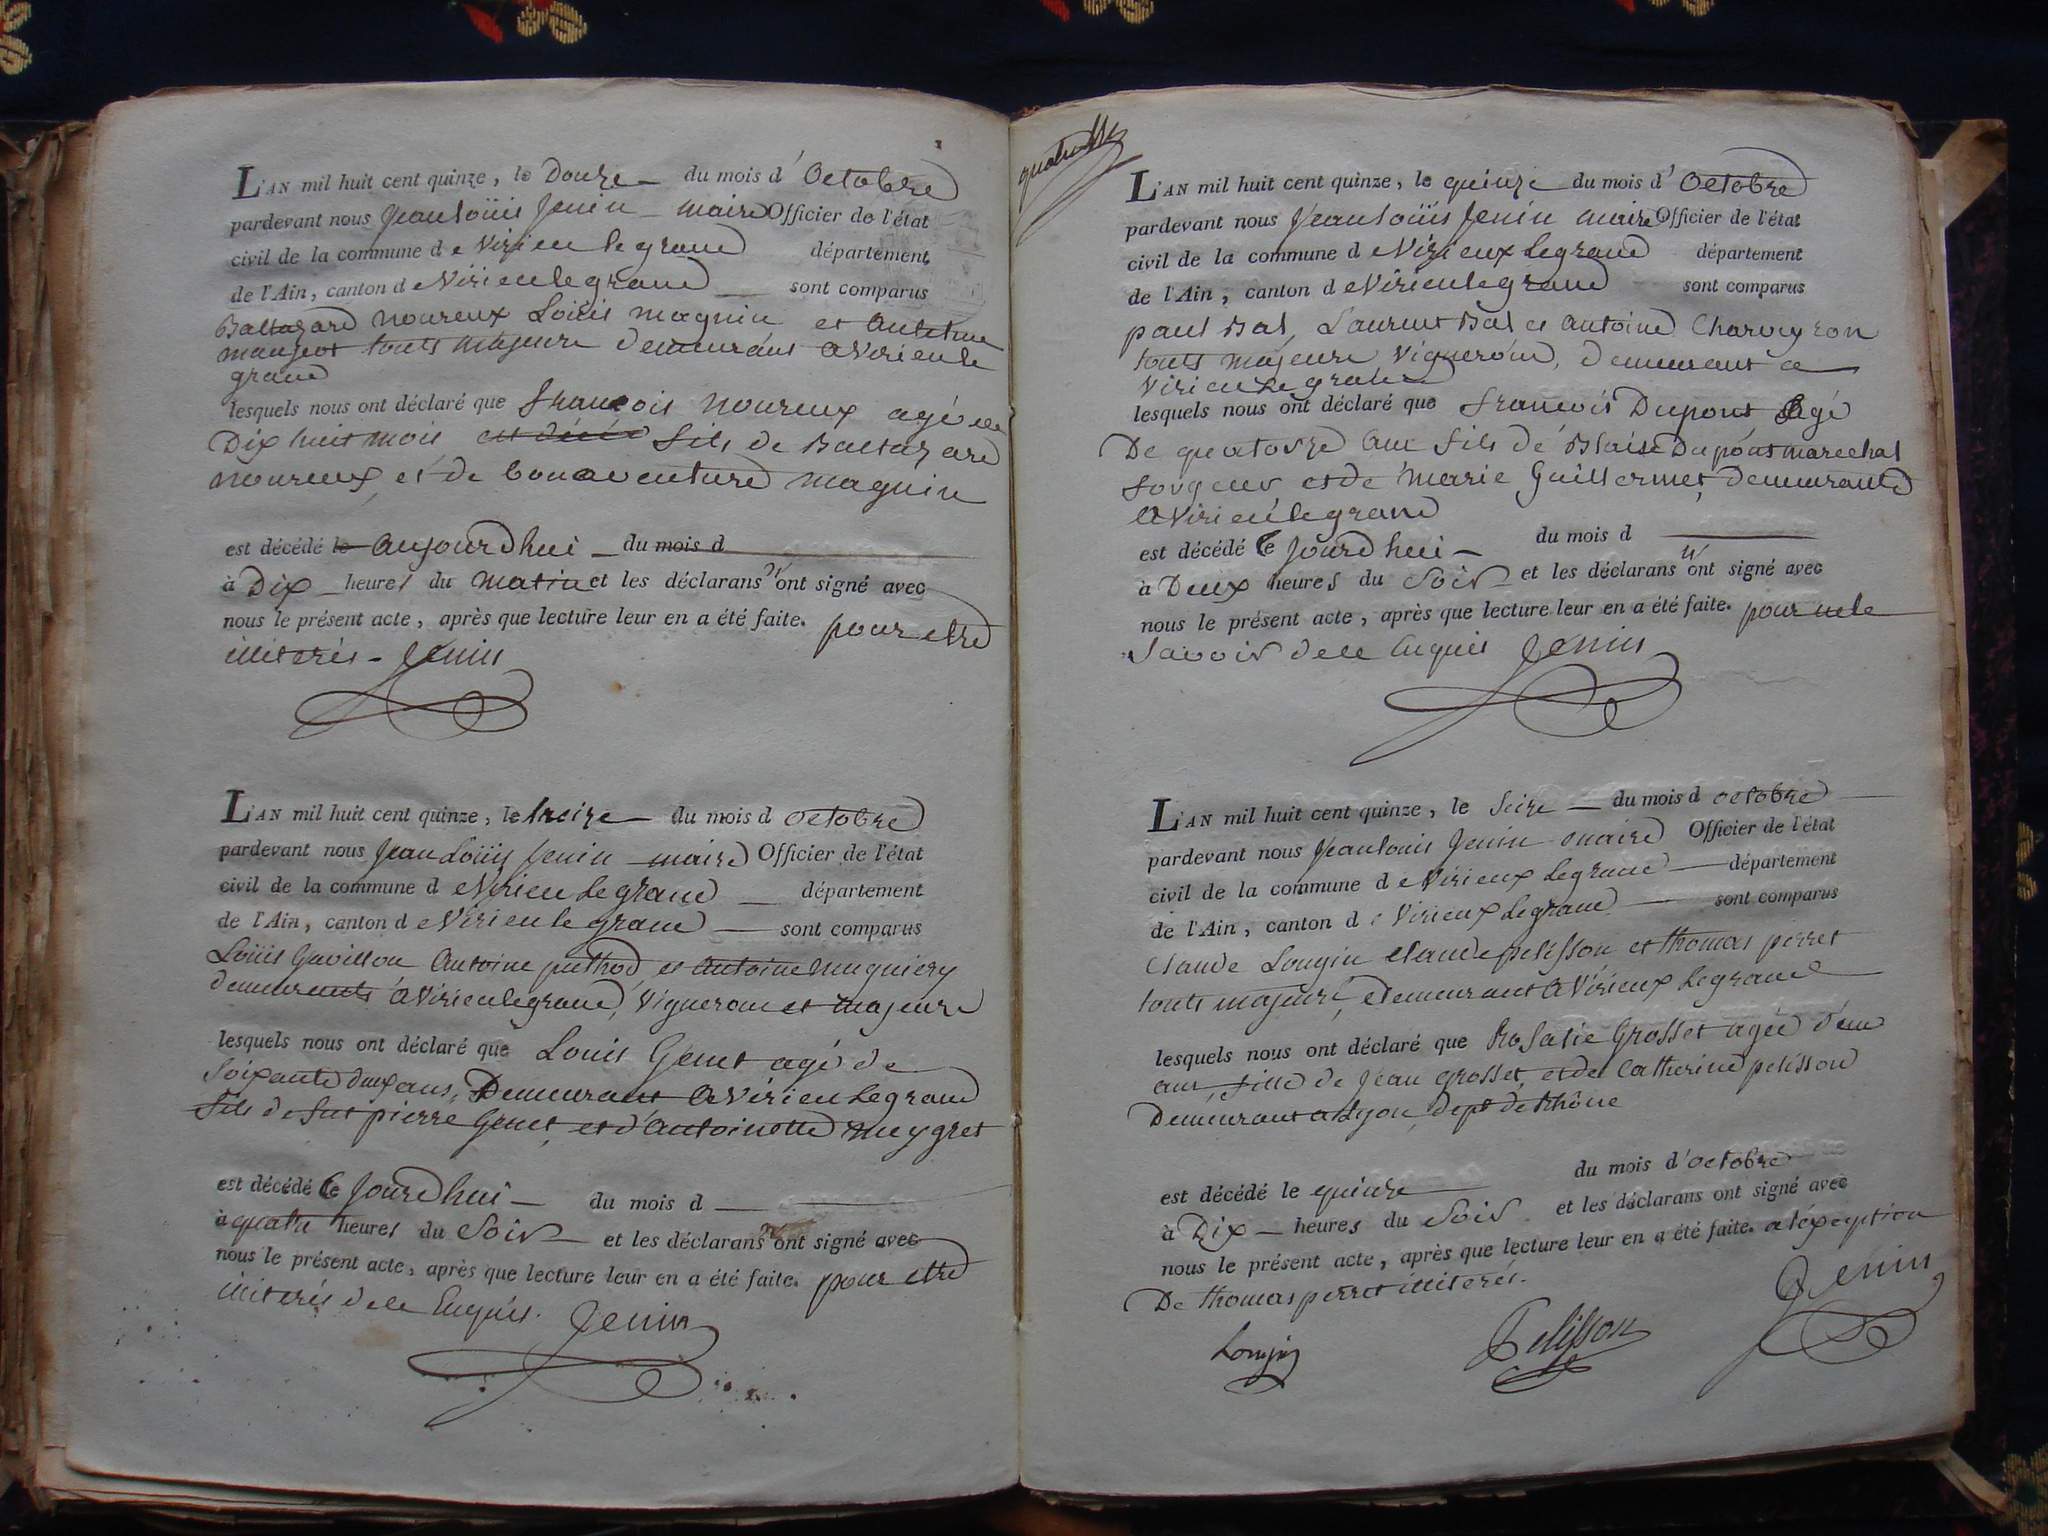 L'AN mil huit cent quinze, le Douze du mois d'Octobre
pardevant nous Jean Loüis Jenin maire Officier de l'état
civil de la commune de Virieu le grand département
de l'Ain, canton de Virieu le grand sont comparus
Baltazard noureux Loüis magnin et Antelme
maujeot touts majeure demeurans a Virieu le
grand
lesquels nous ont déclaré que françois noureux agé de
Dix huit mois est décéd fils de Baltazard
noureux et de bonaventure magnin
est décédé le aujourdhui du mois d
à Dix heures du matin et les déclarans n'ont signé avec
nous le présent acte, après que lecture leur en a été faite. pour etre
illiterés Jenin
L'AN mil huit cent quinze, le treize du mois d octobre
pardevant nous Jean Loüis Jenin maire Officier de l'état
civil de la commune de Virieu le grand département
de l'Ain, canton de Virieu le grand sont comparus
Loüis Gavillon Antoine puthod et Antoine muguiery
demeurants a Virieu le grand, Vigneron et majeure
lesquels nous ont déclaré que Louis Genet agé de
soixante deux ans, Demeurant a Virieu le grand
fils de fut pierre Genet, et d'Antoinette meygret
est décédé ce Jourdhui du mois d
à quatre heures du Soir et les déclarans n'ont signé avec
nous le présent acte, après que lecture leur en a été faite. pour etre
illiterés de ce Enquis. Jenin
L'AN mil huit cent quinze, le quinze du mois d'Octobre
pardevant nous Jean Loüis Jenin maire Officier de l'état
civil de la commune de Virieux le grand département
de l'Ain, canton de Virieu le grand sont comparus
paul Bal, Laurent Bal et Antoine Charveyron
touts majeure Vigneron, demeurant a
Virieu le grand
lesquels nous ont déclaré que françois Dupont Agé
De quatorze ans fils de Blaise Dupont marechal
forgeur et de marie Guillermet, demeurante
a Virieu le grand
est décédé ce Jourdhui du mois d
à Deux heures du Soir et les déclarans n'ont signé avec
nous le présent acte, après que lecture leur en a été faite. pour ne le
Savoir de ce Enquis Jenin
L'AN mil huit cent quinze, le Seize du mois d octobre
pardevant nous Jean Louis Jenin maire Officier de l'état
civil de la commune de Virieux le grand département
de l'Ain, canton de Virieux le grand sont comparus
Claude Longin Claude pelisson et thomas perret
touts majeure, demeurant a Virieux le grand
lesquels nous ont déclaré que RoSalie Grosset agée d'un
ans fille de Jean Grosset, et de Catherine pelisson
Demeurant a Lyon, Dept de Rhône
est décédé le quinze du mois d'octobre
à Dix heures du Soir et les déclarans ont signé avec
nous le présent acte, après que lecture leur en a été faite. a léxception
De thomas perret illiterés.
Longin Pelisson Jenin